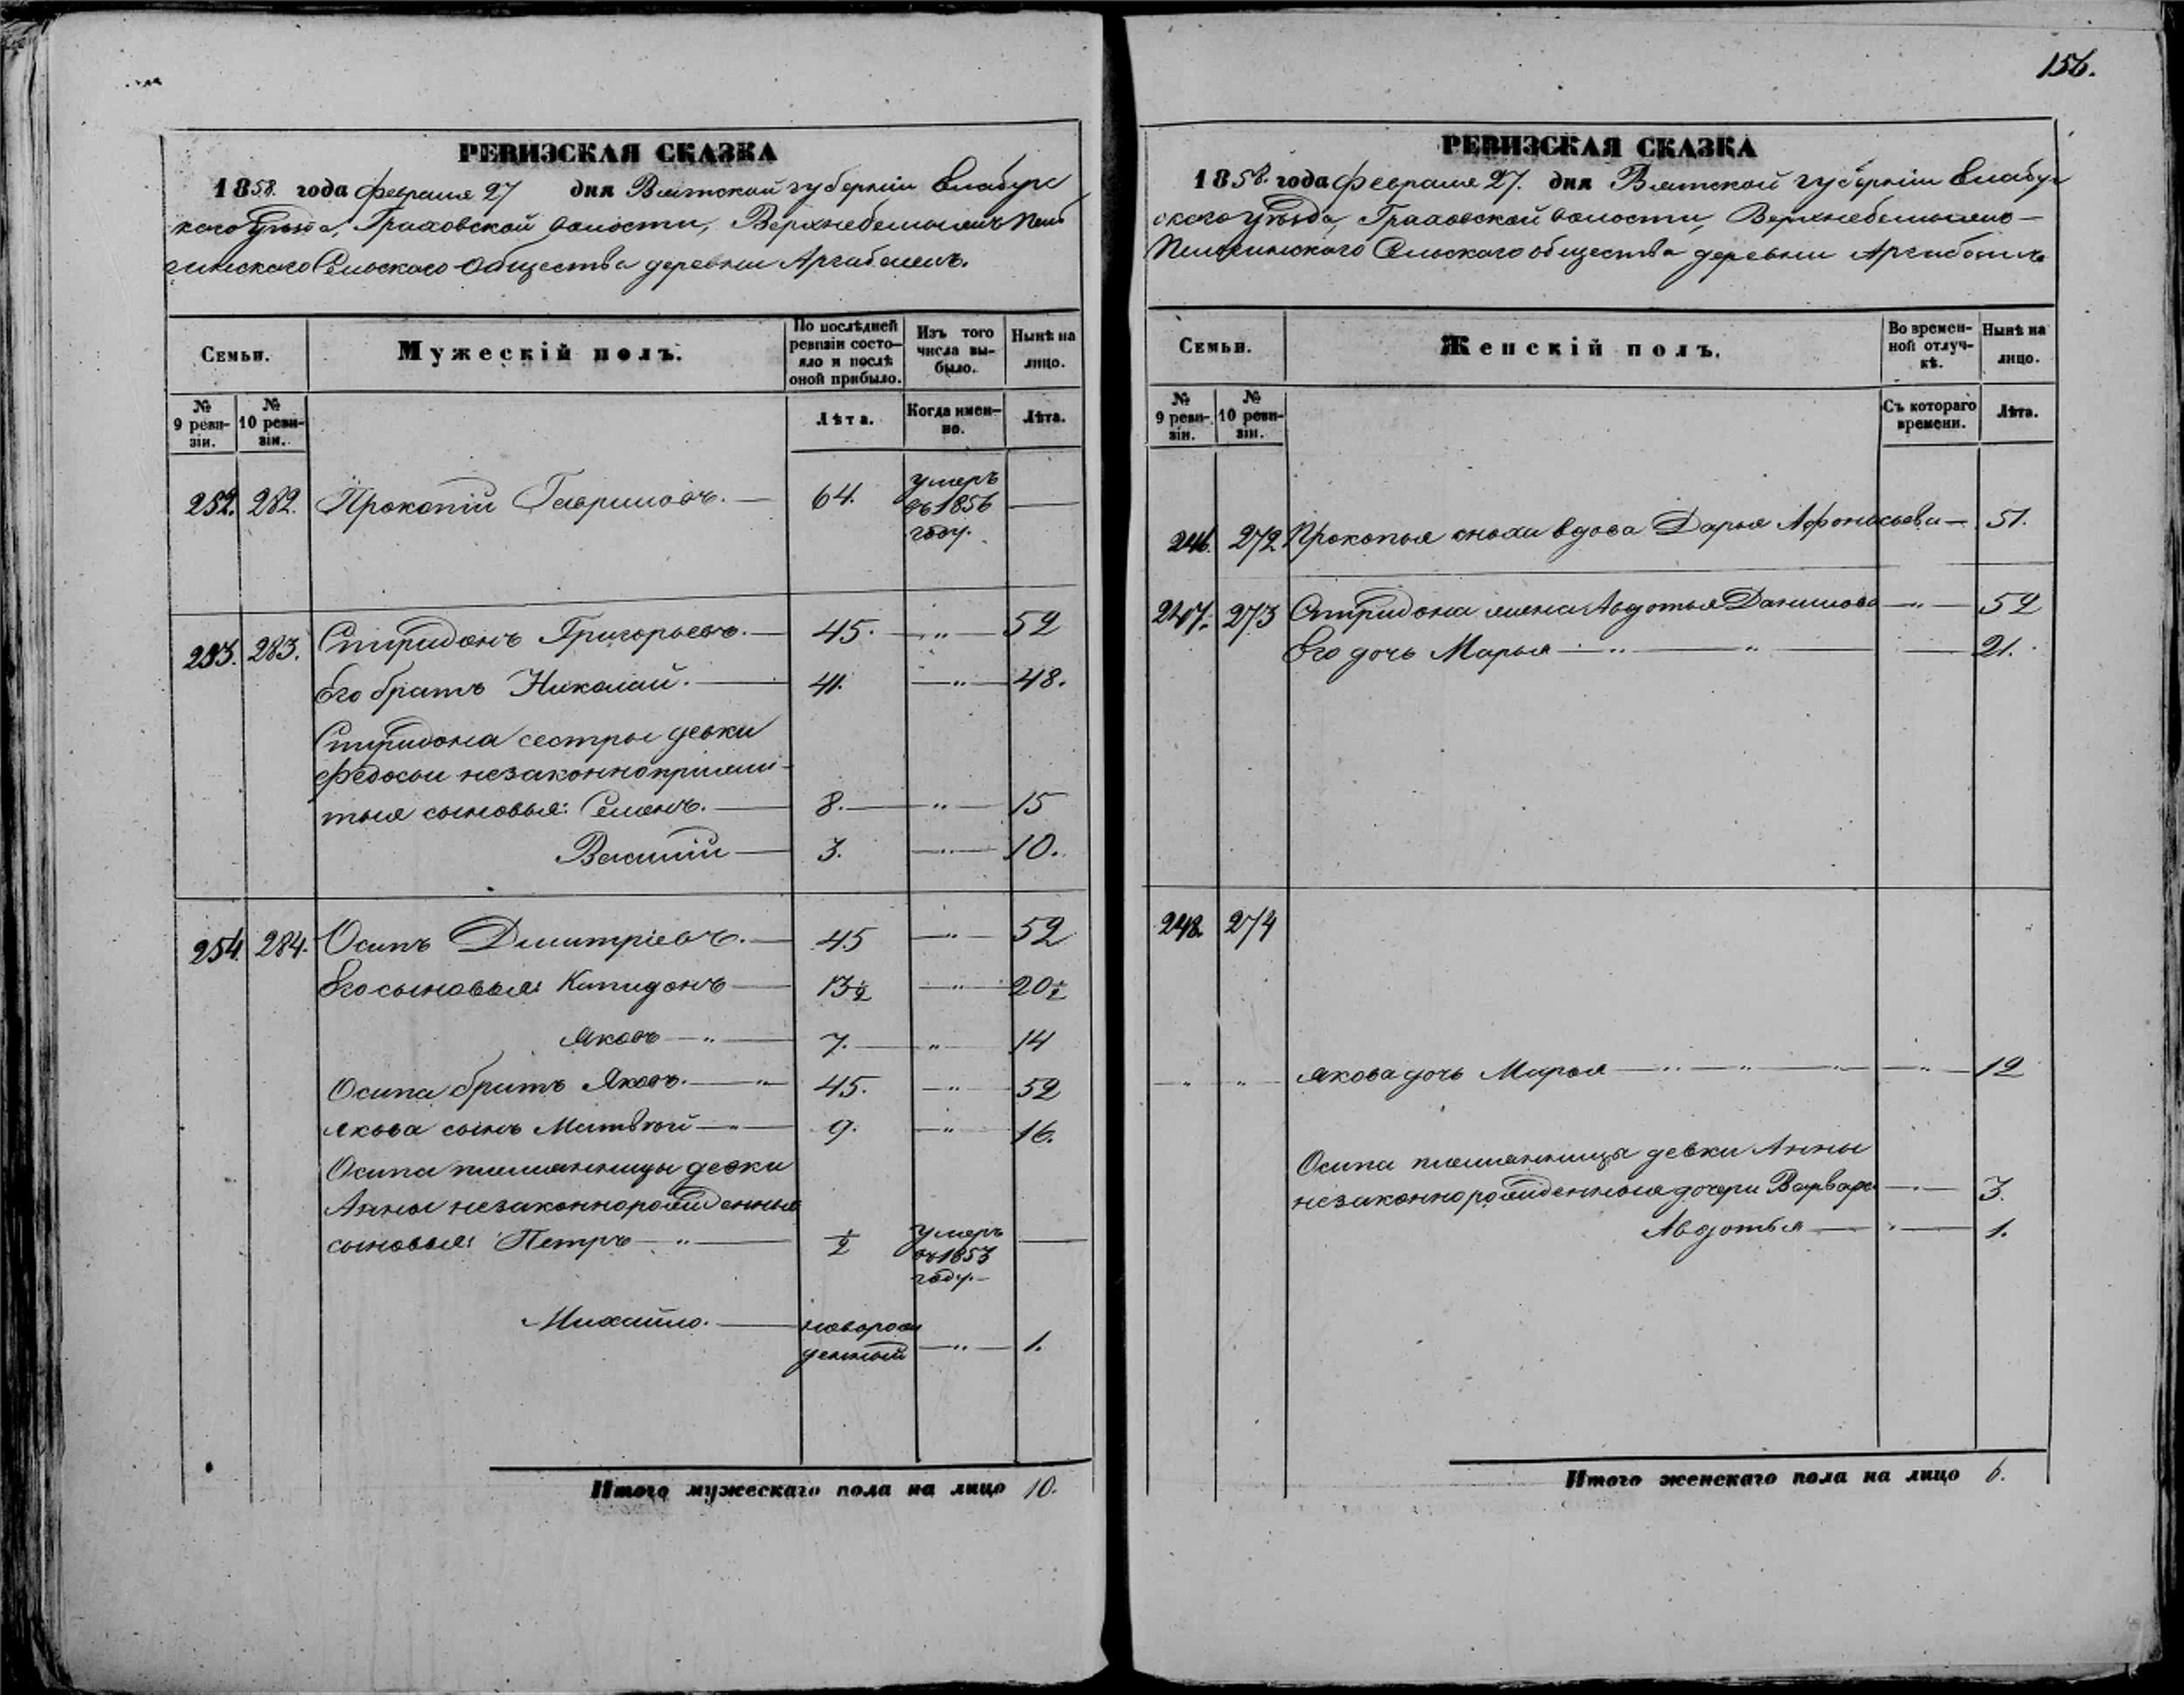 156.
РЕВИЗСКАЯ СКАЗКА
1858. года Февраля 27 дня Вятской губернiи Елабужс
каго Уѣзда, Граховской волости,
Сельскаго Общества деревни
Семьи.
Мужескiй полъ.
По послѣдней ревизiи состояло и послѣ оной прибыло.
Изъ того числа выбыло.
Нынѣ на лицо.
№ 9 ревизiи.
№ 10 ревизiи.
Лѣта.
Когда именно.
Лѣта.
252. 282. Прокопiй Гавриловъ. — 64. умеръ въ 1856 году. —
253. 283. Спиридонъ Григорьевъ. — 45. — „ — 52
Его братъ Николай. — 41. — „ — 48.
Спиридона сестры девки
Федосьи незаконноприжи-
тыя сыновья: Семенъ. — 8. — „ — 15
Василiй — 3. — „ — 10.
254. 284. Осипъ Дмитрiевъ. — 45 — „ — 52
Его сыновья: Капидонъ — 13½ — „ — 20½
Яковъ — „ — 7. — „ — 14
Осипа братъ Яковъ. — „ 45. — „ — 52
Якова сынъ Матвѣй — „ — 9. — „ 16.
Осипа племянницы девки
Анны незаконнорожденные
сыновья: Петръ — „ — ½ умеръ въ 1853 году. —
Михайло. — новорож
денный — „ — 1.
Итого мужескаго пола на лицо 10.
РЕВИЗСКАЯ СКАЗКА
1858. года Февраля 27. дня Вятской губернiи Елабуж
скаго Уѣзда, Граховской волости,
Сельскаго общества деревни
Семьи.
Женскiй полъ.
Во временной отлучкѣ.
Нынѣ на лицо.
№ 9 ревизiи.
№ 10 ревизiи.
Съ котораго времени.
Лѣта.
246. 272 Прокопья снохи вдова Дарья Афонасьева — 51.
247. 273 Спиридона жена Авдотья Данилова — „ — 52
Его дочь Марья — „ — „ — 21.
248. 274
„ „ Якова дочь Марья — „ — „ — „ — „ — 12
Осипа племянницы девки Анны
незаконнорожденныя дочери Варвара — „ — 3.
Авдотья — „ — 1.
Итого женскаго пола на лицо 6.